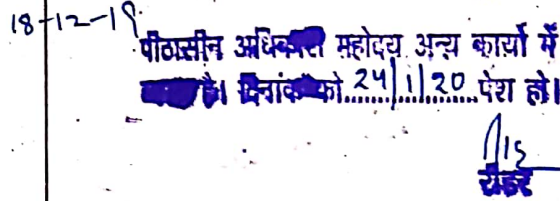 18-12-19
पीठासीन अधिकारी महोदय अन्य कार्यो में
है। दिनांक को 24/1/20 पेश हो।
रीडर